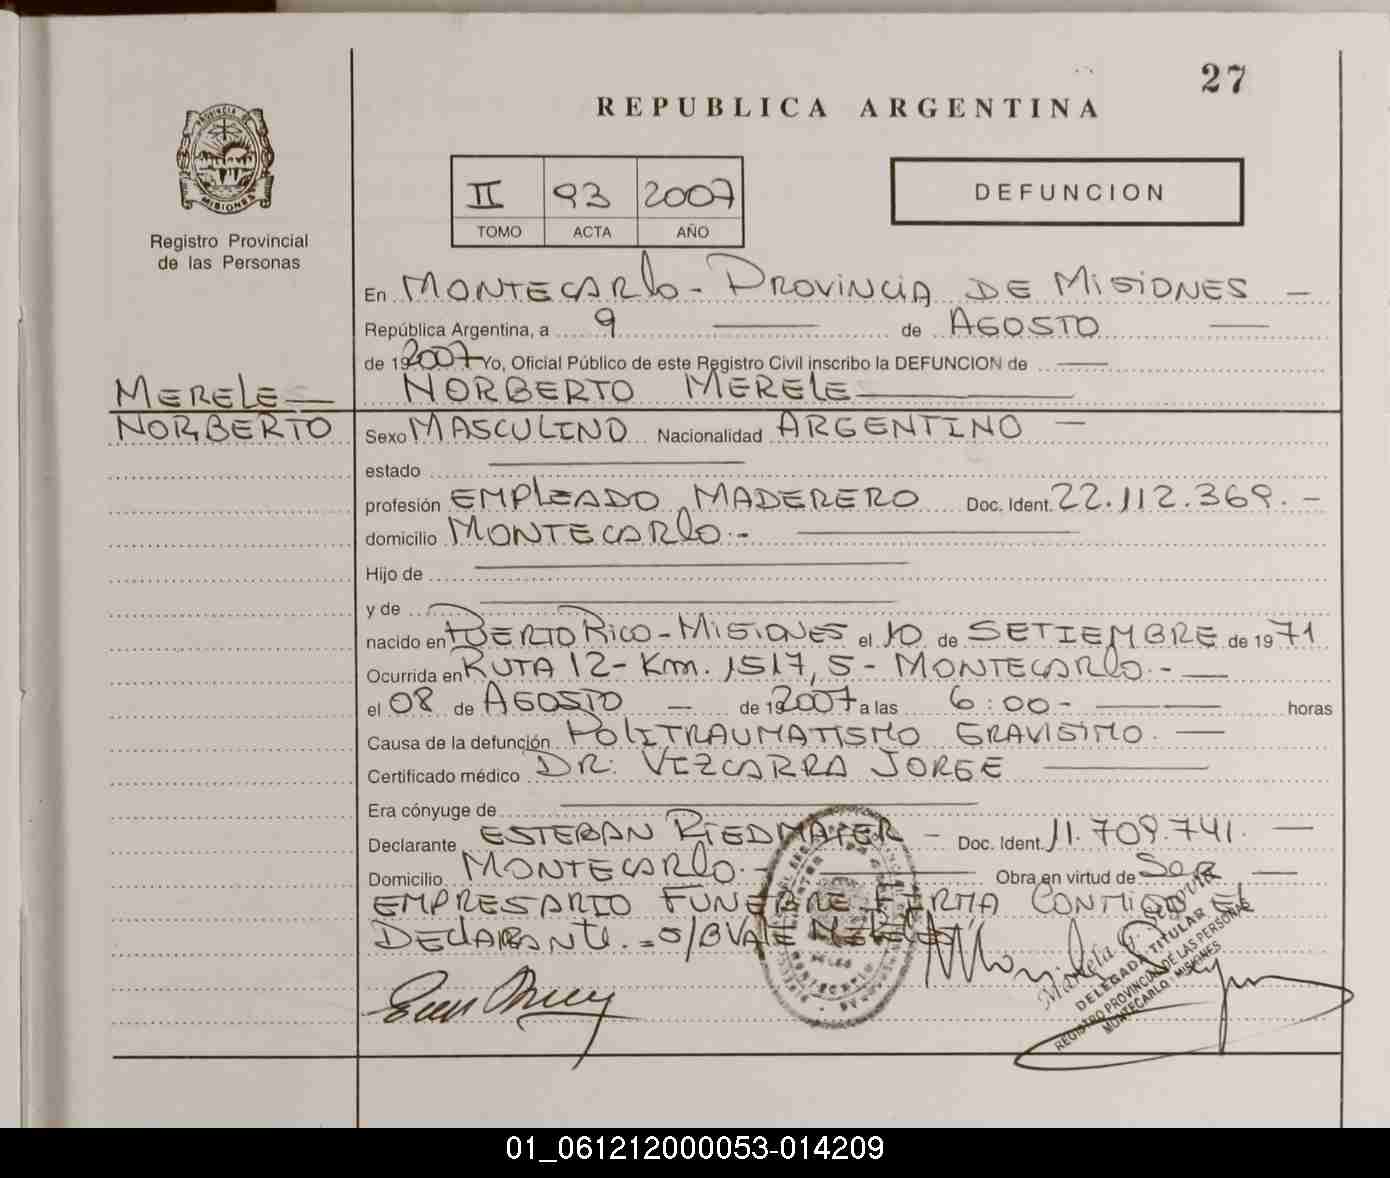 27
REPUBLICA ARGENTINA
PROVINCIA DE
MISIONES
Registro Provincial
de las Personas
II 93 2007
TOMO ACTA AÑO
DEFUNCION
En MONTECARLO - PROVINCIA DE MISIONES -
República Argentina, a 9 de AGOSTO
de 192007 Yo, Oficial Público de este Registro Civil inscribo la DEFUNCION de
MERELE NORBERTO MERELE
NORBERTO Sexo MASCULINO Nacionalidad ARGENTINO -
estado
profesión EMPLEADO MADERERO Doc. Ident. 22.112.369.-
domicilio MONTECARLO.-
Hijo de
y de
nacido en PUERTO RICO - MISIONES el 10 de SETIEMBRE de 1971
Ocurrida en RUTA 12 - Km. 1517,5 - MONTECARLO.-
el 08 de AGOSTO - de 192007 a las 6:00- horas
Causa de la defunción POLITRAUMATISMO GRAVISIMO.
Certificado médico DR: VIZCARRA JORGE
Era cónyuge de
Declarante ESTEBAN RIEDMAYER - Doc. Ident. 11.709.741.
Domicilio MONTECARLO.- Obra en virtud de SER
EMPRESARIO FUNEBRE FIRMA CONMIGO EL
DECLARANTE. =
DELEGADA TITULAR
REGISTRO PROVINCIAL DE LAS PERSONAS
MONTECARLO MISIONES
01_061212000053-014209